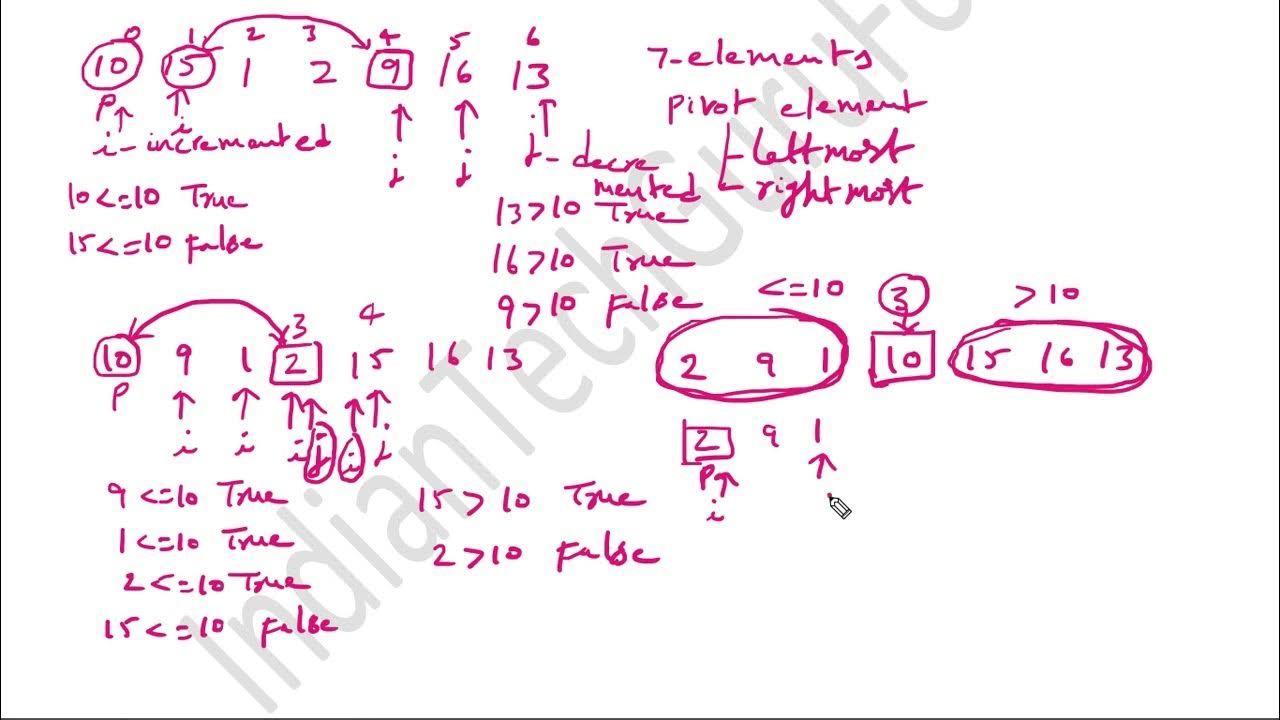 0 1 2 3 4 5 6
10 15 1 2 9 16 13
7-elements
P i i j j j
pivot element
i-incremented
leftmost
j-decre
mented
rightmost
10<=10 True
15<=10 False
13>10 True
16>10 True
9>10 False
<=10 3 >10
3 4
10 9 1 2 15 16 13
2 9 1 10 15 16 13
P
i i i j i j
2 9 1
P
i
9<=10 True
1<=10 True
2<=10 True
15<=10 False
15>10 True
2>10 False
IndianTechGuruFo